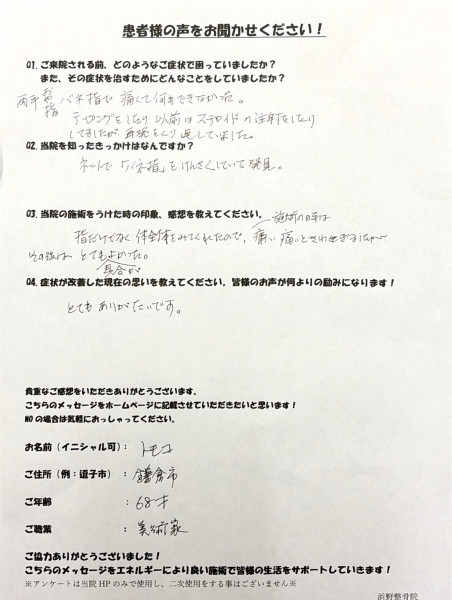 患者様の声をお聞かせください！
Q1. ご来院される前、どのようなご症状で困っていましたか？
また、その症状を治すためにどんなことをしていましたか？
両手 おや指 バネ指で 痛くて何もできなかった。
テーピングをしたり 以前はステロイドの注射をしたり
してましたが 再発をくり返していました。
Q2. 当院を知ったきっかけはなんですか？
ネットで「バネ指」をけんさくしていて発見。
Q3. 当院の施術をうけた時の印象、感想を教えてください。
施術の時は
指だけでなく 体全体をみてくれたので、痛い 痛いと
その後は とてもよかった。
具合が
Q4. 症状が改善した現在の思いを教えてください。皆様のお声が何よりの励みになります！
とても ありがたいです。
貴重なご感想をいただきありがとうございます。
こちらのメッセージをホームページに記載させていただきたいと思います！
NOの場合は気軽におっしゃってください。
お名前（イニシャル可）： トモコ
ご住所（例：逗子市） ： 鎌倉市
ご年齢 ： 68才
ご職業 ： 美術家
ご協力ありがとうございました！
こちらのメッセージをエネルギーにより良い施術で皆様の生活をサポートしていきます！
※アンケートは当院HPのみで使用し、二次使用をする事はございません※
浜野整骨院